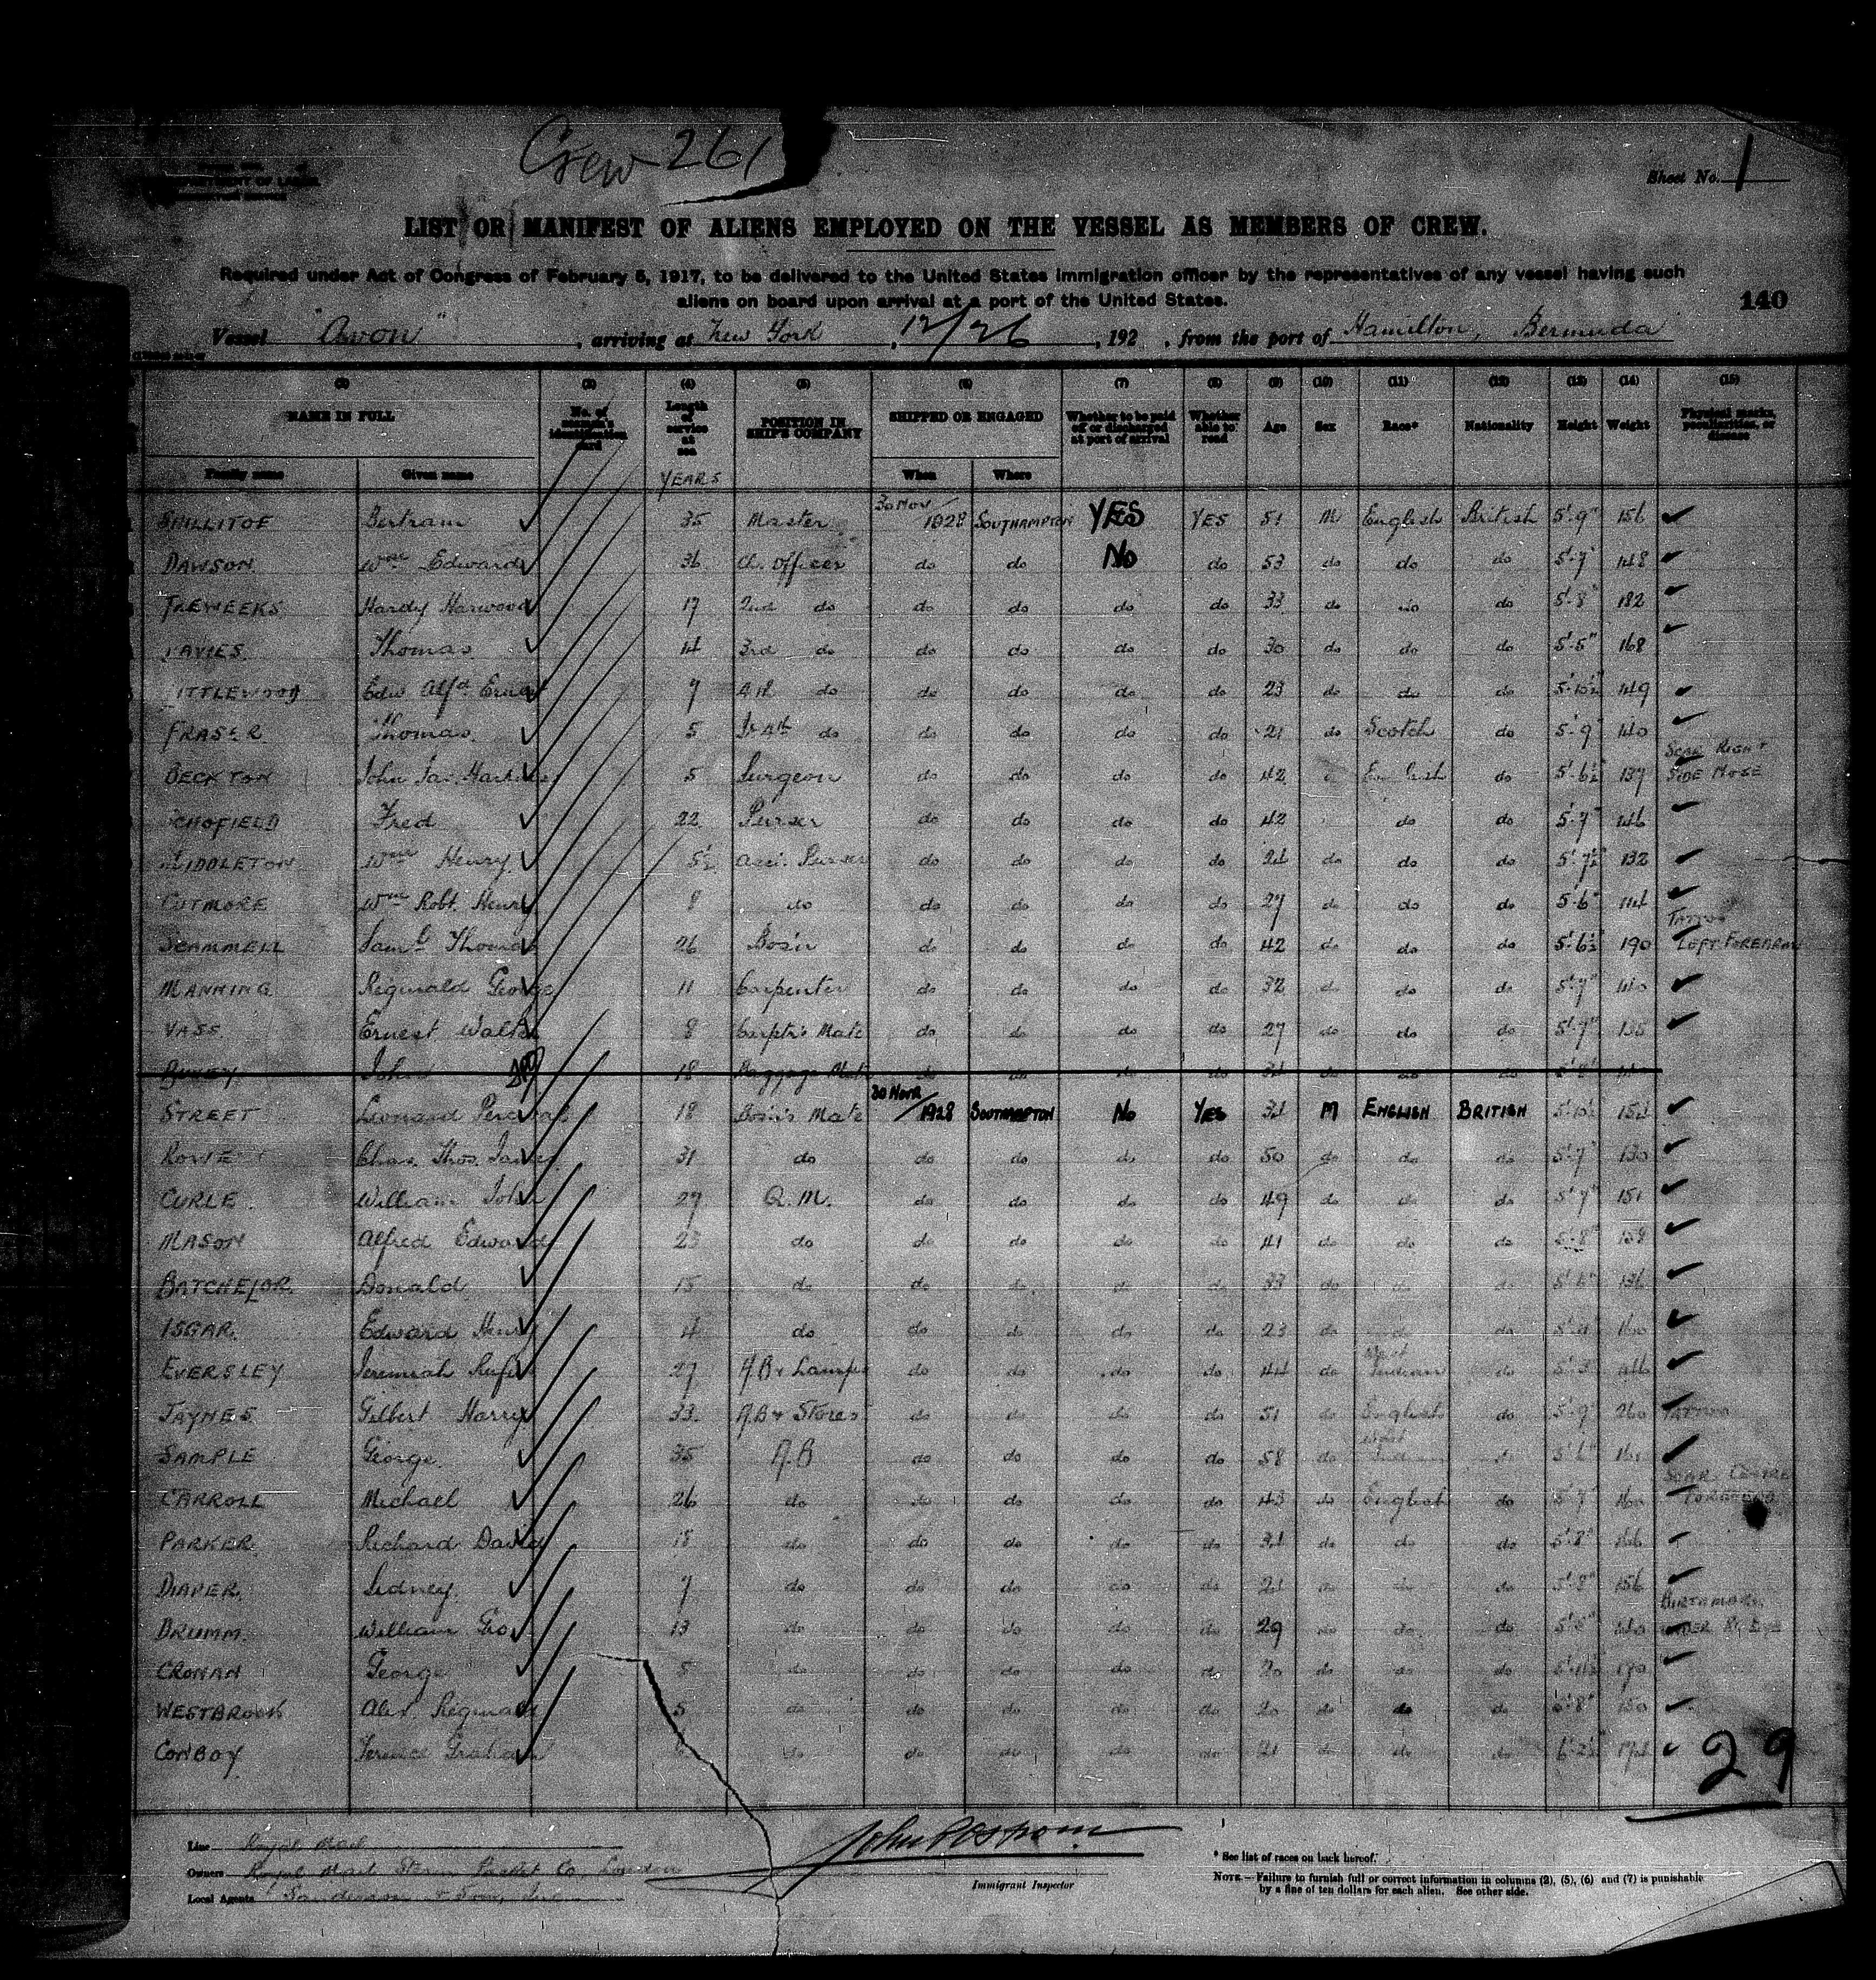 Crew 261
Sheet No. 1
LIST OR MANIFEST OF ALIENS EMPLOYED ON THE VESSEL AS MEMBERS OF CREW.
Required under Act of Congress of February 5, 1917, to be delivered to the United States immigration officer by the representatives of any vessel having such
aliens on board upon arrival at a port of the United States.
140
Vessel "Avon", arriving at New York, 12/26, 192 , from the port of Hamilton, Bermuda
(3) (4) (5) (6) (7) (8) (9) (10) (11) (12) (13) (14) (15)
NAME IN FULL No. of seaman's identification card Length of service at sea POSITION IN SHIP'S COMPANY SHIPPED OR ENGAGED Whether to be paid off or discharged at port of arrival Whether able to read Age Sex Race* Nationality Height Weight Physical marks, peculiarities, or disease
Family name Given name YEARS When Where
SHILLITOE Bertram 35 Master 30 Nov 1928 SOUTHAMPTON YES YES 51 M English British 5'-9" 156
DAWSON Wm Edward 36 Ch. Officer do do No do 53 do do do 5'-7" 148
TREWEEKS Hardy Harwood 17 2nd do do do do do 33 do do do 5'-8" 182
DAVIES Thomas 14 3rd do do do do do 30 do do do 5'-5" 168
LITTLEWOOD Edw Alfd Ernest 7 4th do do do do do 23 do do do 5'-10½ 149
FRASER Thomas 5 do do do do do 21 do Scotch do 5'-9 140
BECKTON John Jas 5 Surgeon do do do do 42 English do 5'-6½ 137 SCAR RIGHT SIDE NOSE
SCHOFIELD Fred 22 Purser do do do do 42 do do 5'-7" 146
MIDDLETON Wm Henry 5½ Assi. Purser do do do do 24 do do do 5'-7½ 132
CUTMORE Wm Robt. Henry 8 do do do do do 27 do do do 5'-6" 114
SCAMMELL Saml Thomas 26 Bos'n do do do do 42 do do do 5'-6½ 190 TATTOO LEFT FOREARM
MANNING Reginald George 11 Carpenter do do do do 32 do do do 5'-7" 140
VASS Ernest Walter 8 Carptr's Mate do do do do 27 do do do 5'-7"
John 18 Baggage
STREET Leonard Percival 18 Bosn's Mate 30 NOVR 1928 SOUTHAMPTON No YES 34 M ENGLISH BRITISH 5'-10½ 154
ROWE Chas. Thos. James 31 do do do do do 50 do do do 5'-7" 130
CURLE William John 27 Q.M. do do do do 49 do do do 5'-7" 151
MASON Alfred Edward 23 do do do do do 41 do do do 5'-8"
BATCHELOR Donald 15 do do do do do 33 do do 136
ISGAR Edward Henry 4 do do do do do 23 do do
EVERSLEY Jeremiah 27 A.B & Lamps do do do do 44 do West Indian do
JAYNES Gilbert Harry 33 A.B & Stores do do do do 51 do English do 5'-9" 260 TATTOO
SAMPLE George 35 A.B do do do do 58 do West
CARROLL Michael 26 do do do do do 43 do English do 5'-7 SCAR CENTRE FOREHEAD
PARKER Richard David 18 do do do do do 34 do do do 5'-8"
DIAPER Sidney 7 do do do do do do do 5'-8" 156
DRUMM William Geo. 13 do do do do do 29 do do do BIRTHMARK UNDER Rt EYE
CRONAN George 5 do do do do do 20 do do do
WESTBROOK Alex. Reginald 5 do do do do do 20 do do do
CONBOY Terence Graham do do do do do 21 do do do 6'-2½
29
Line Royal Mail
Owners Royal Mail Steam Packet Co London
Local Agents Sanderson & Son, Inc
Immigrant Inspector
* See list of races on back hereof.
NOTE.—Failure to furnish full or correct information in columns (2), (5), (6) and (7) is punishable
by a fine of ten dollars for each alien. See other side.